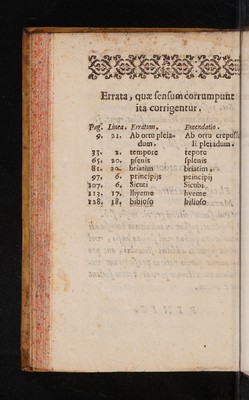 Errata, quæ sensum corrumpunt
ita corrigentur.
Pag. Linea. Erratum. Emendatio.
9. 21. Ab ortu pleia- Ab ortu crepusc
dum. li pleiadum.
33. 2. tempore tepore
65. 20. psenis splenis
81. 20. briatim briatim.
97. 6. principijs principij
107. 6. Sicuti Sicubi
113. 17. Ihyeme hyeme
128. 18. bibioso bilioso